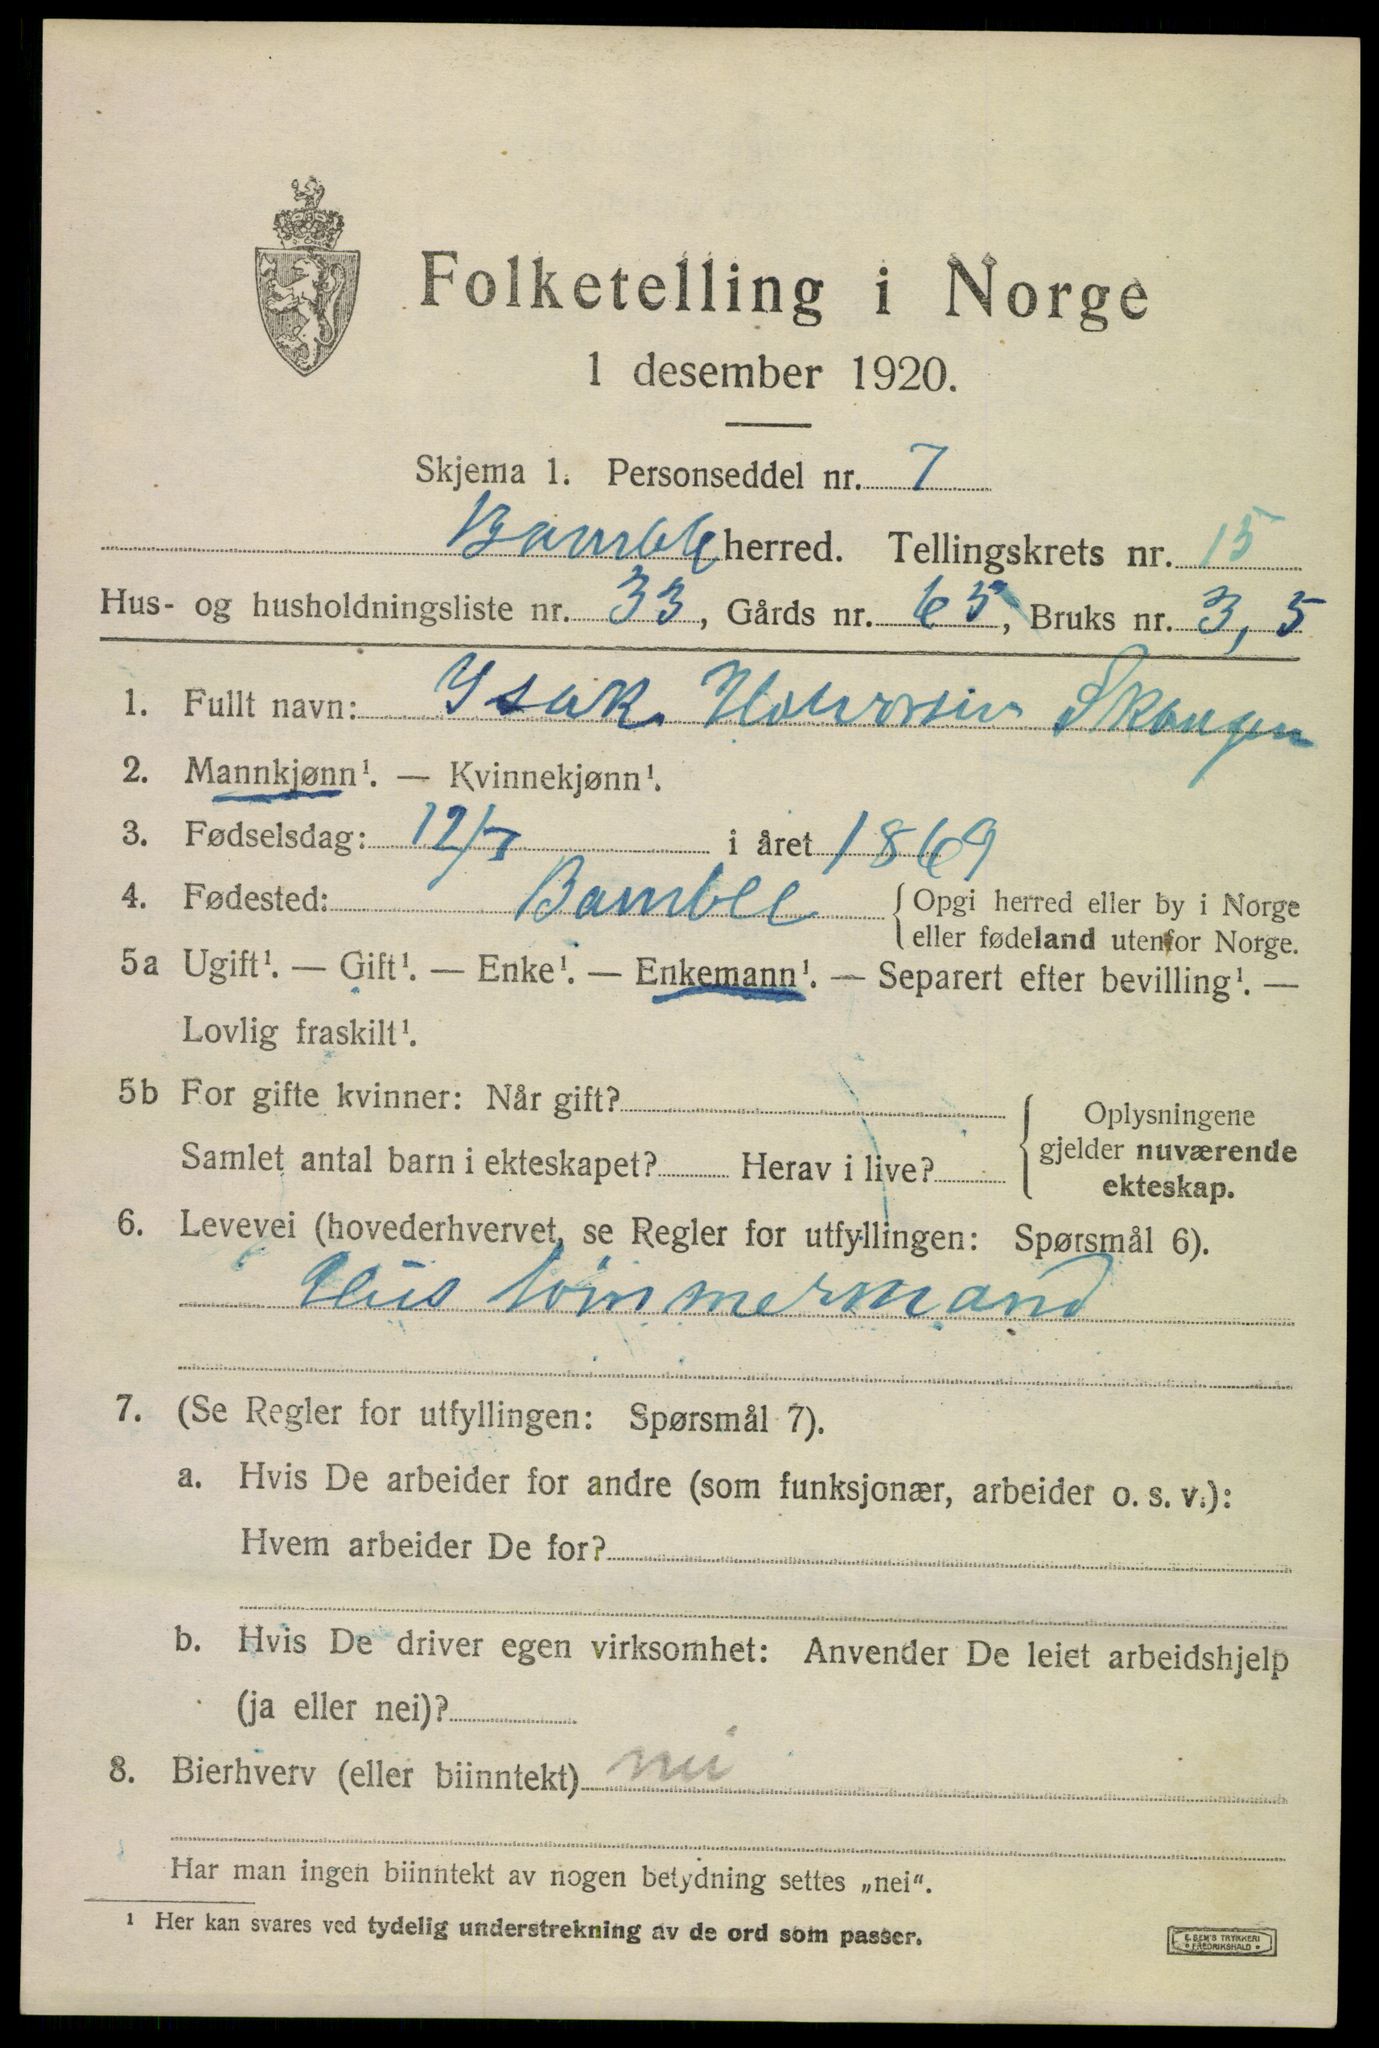 Folketelling i Norge
1 desember 1920.
Skjema 1. Personseddel nr. 7
Bamble herred. Tellingskrets nr. 15
Hus- og husholdningsliste nr. 33, Gårds nr. 65, Bruks nr. 3, 5
1. Fullt navn: Ysak Halvorsen Skaugen
2. Mannkjønn¹. — Kvinnekjønn¹.
3. Fødselsdag: 12/7 i året 1869
4. Fødested: Bamble { Opgi herred eller by i Norge
eller fødeland utenfor Norge.
5a Ugift¹. — Gift¹. — Enke¹. — Enkemann¹. — Separert efter bevilling¹. —
Lovlig fraskilt¹.
5b For gifte kvinner: Når gift?
Samlet antal barn i ekteskapet? Herav i live?
{ Oplysningene
gjelder nuværende
ekteskap.
6. Levevei (hovederhvervet, se Regler for utfyllingen: Spørsmål 6).
Hus tømmermand
7. (Se Regler for utfyllingen: Spørsmål 7).
a. Hvis De arbeider for andre (som funksjonær, arbeider o. s. v.):
Hvem arbeider De for?
b. Hvis De driver egen virksomhet: Anvender De leiet arbeidshjelp
(ja eller nei)?
8. Bierhverv (eller biinntekt) nei
Har man ingen biinntekt av nogen betydning settes „nei“.
¹ Her kan svares ved tydelig understrekning av de ord som passer.
E. SEM'S TRYKKERI
* FREDRIKSHALD *